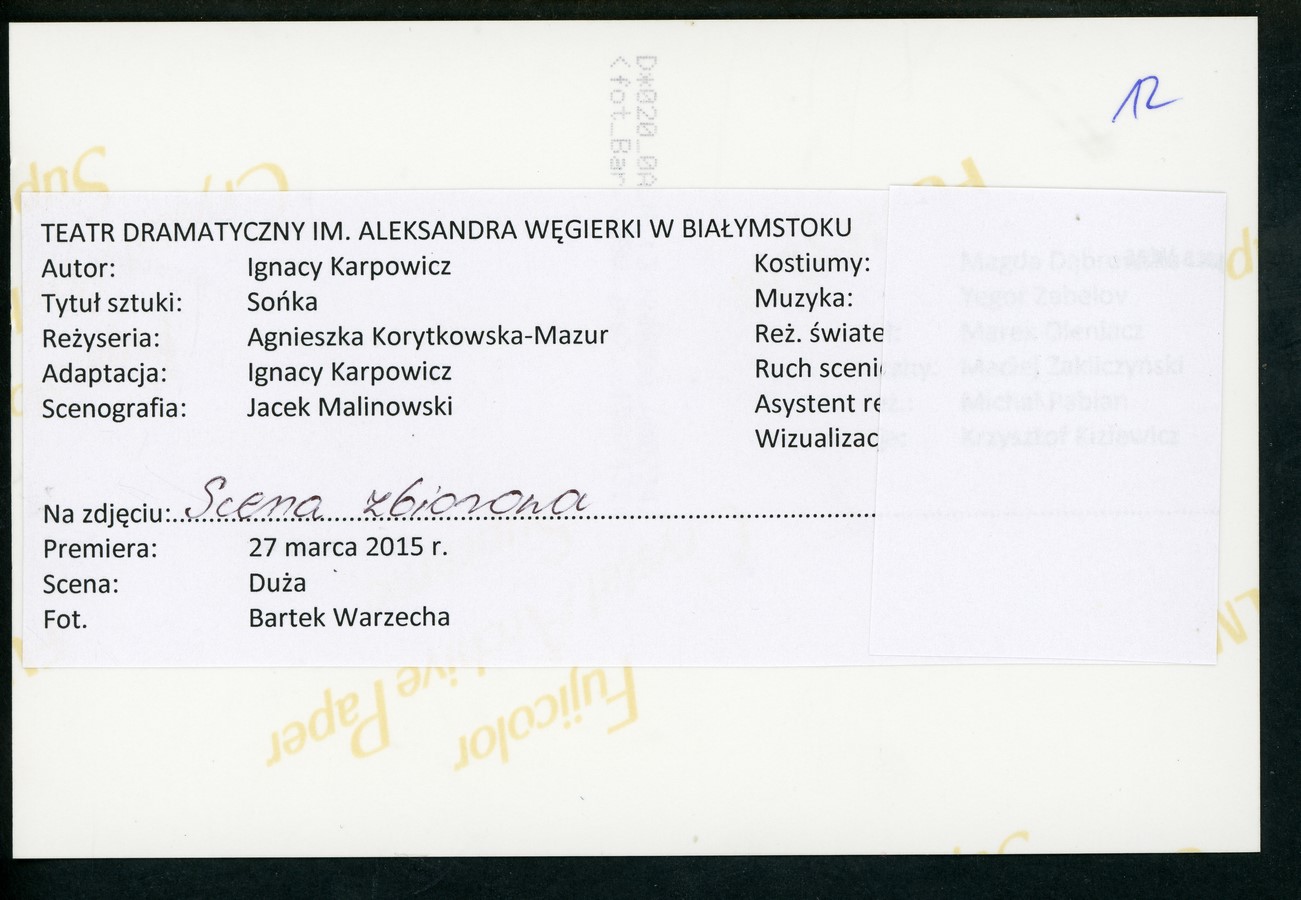 D*020_0A
<fot_Bar
12
TEATR DRAMATYCZNY IM. ALEKSANDRA WĘGIERKI W BIAŁYMSTOKU
Autor: Ignacy Karpowicz
Tytuł sztuki: Sońka
Reżyseria: Agnieszka Korytkowska-Mazur
Adaptacja: Ignacy Karpowicz
Scenografia: Jacek Malinowski
Kostiumy: Magda Dąbrowska
Muzyka: Yegor Zabelov
Reż. świateł: Marek Oleniacz
Ruch sceniczny: Maciej Zakliczyński
Asystent reż.: Michał Pabian
Wizualizacje: Krzysztof Kiziewicz
Na zdjęciu: Scena zbiorowa
Premiera: 27 marca 2015 r.
Scena: Duża
Fot. Bartek Warzecha
Fujicolor
Archive Paper